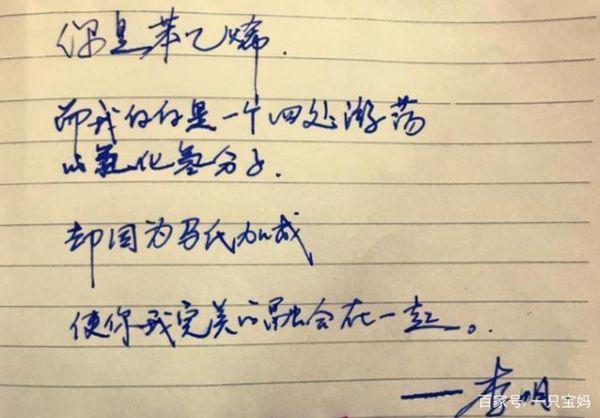 你是苯乙烯.
而我仅仅是一个四处游荡
的氯化氢分子.
却因为马氏加成
使你我完美的融合在一起。
——李明.
百家号/一只宝妈